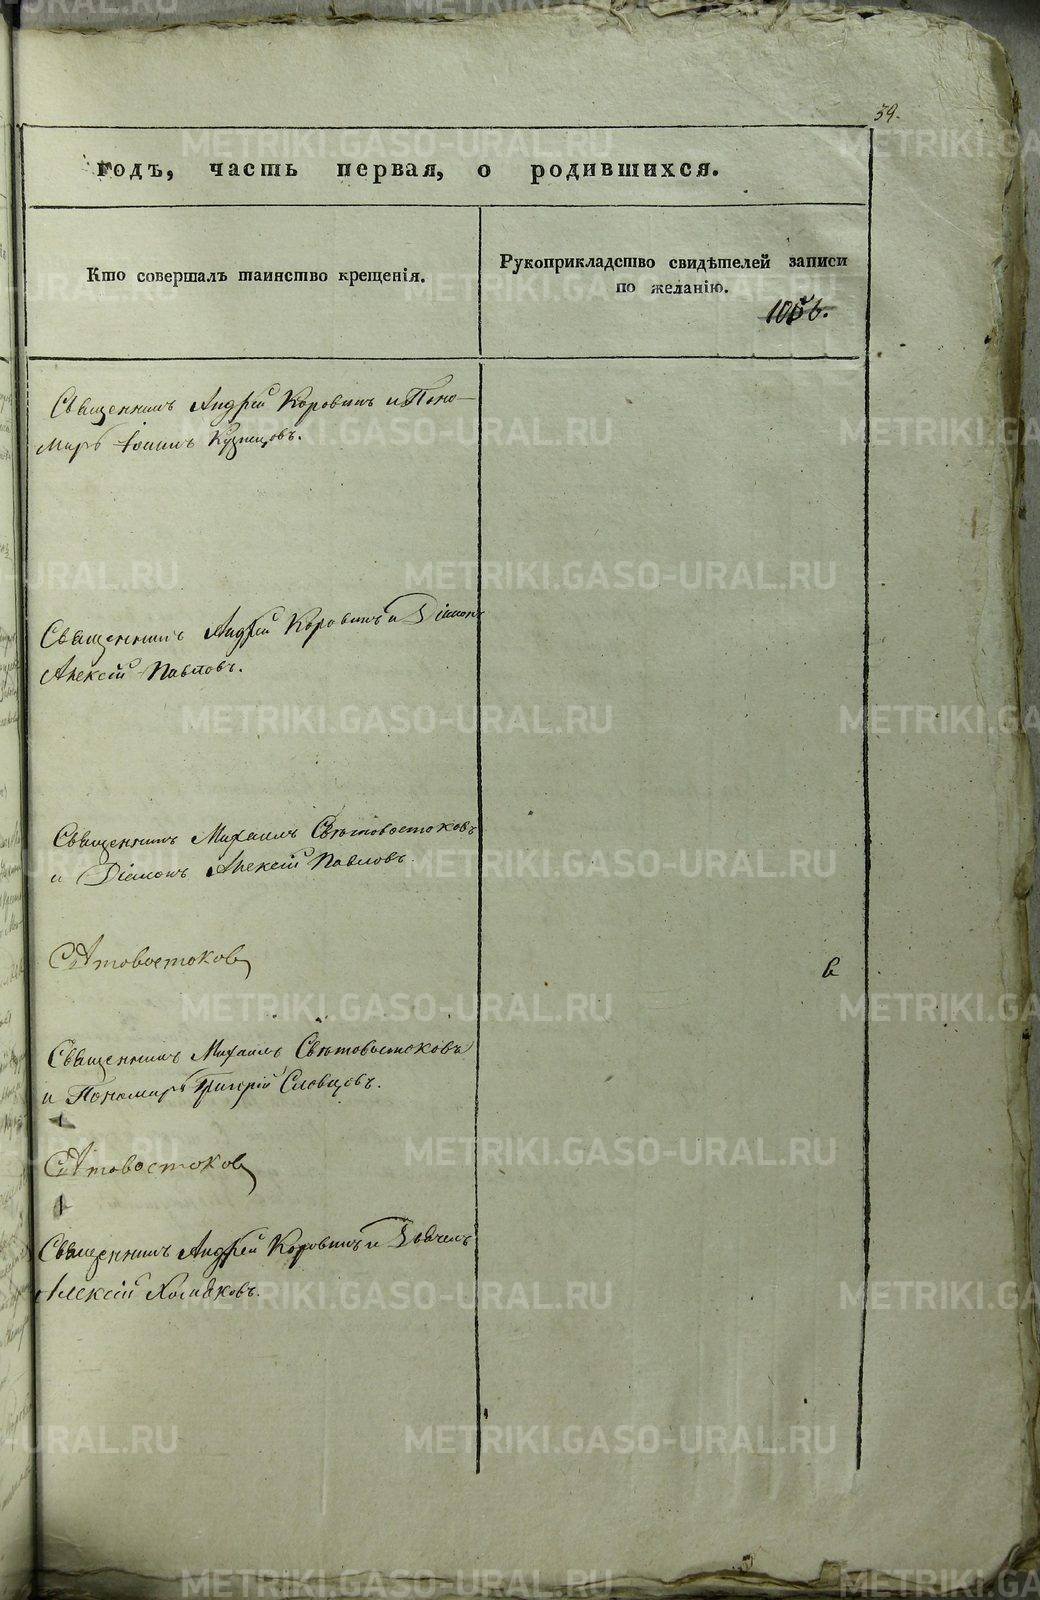 59.
годъ, часть первая, о родившихся.
Кто совершалъ таинство крещенія.
Рукоприкладство свидѣтелей записи
по желанію.
Священникъ Андрей Коровинъ и Поно-
марь Іоаннъ Кузнецовъ.
Священникъ Андрей Коровинъ и Діаконъ
Алексій Павловъ.
Священникъ Михаилъ Свѣтовостоковъ
и Діаконъ Алексій Павловъ.
Священникъ Михаилъ Свѣтовостоковъ
и Пономарь Григорій Словцовъ.
Священникъ Андрей Коровинъ и Дьячекъ
Алексій
METRIKI.GASO-URAL.RU